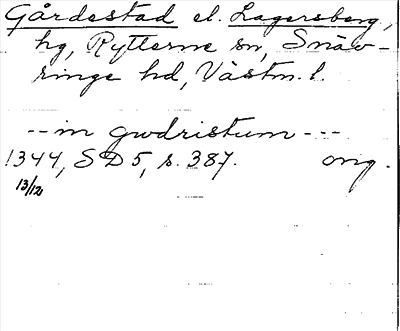 Gårdestad el. Lagersberg,
hg, Rytterne sn, Snäv-
ringe hd, Västm. l.
--in gwdristum ---
1344, SD 5, s. 387. orig.
13/12